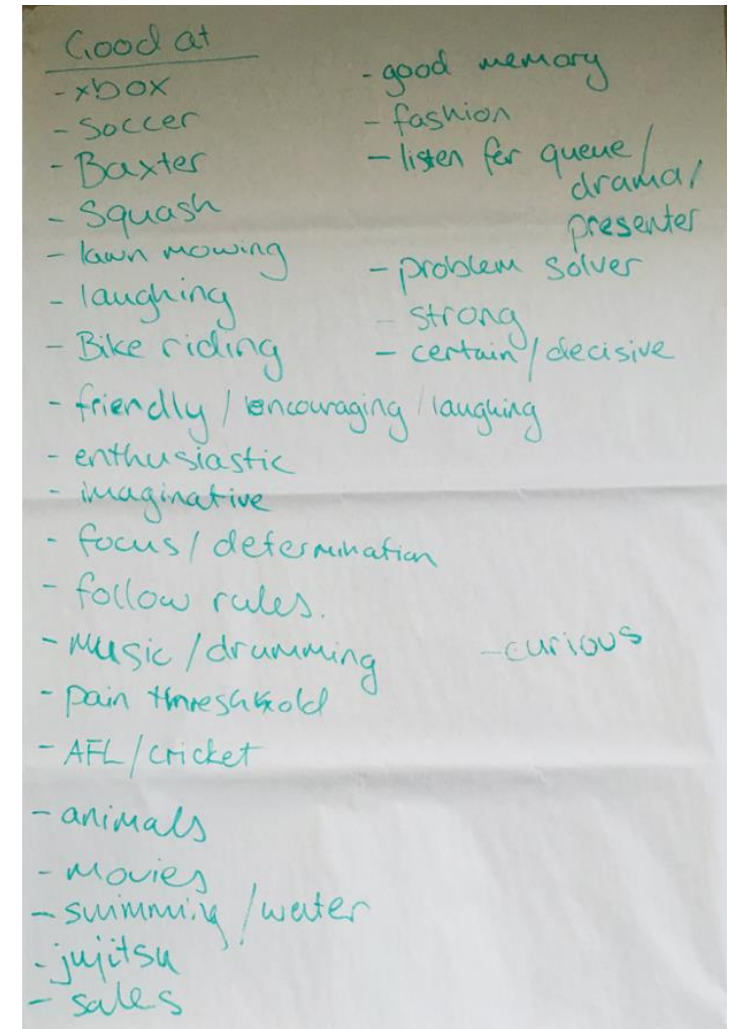 Good at
- xbox
- Soccer
- Baxter
- Squash
- lawn mowing
- laughing
- Bike riding
- friendly / encouraging / laughing
- enthusiastic
- imaginative
- focus / determination
- follow rules.
- Music / drumming
- pain threshhold
- AFL / cricket
- animals
- Movies
- swimming / water
- jujitsu
- sales
- good memory
- fashion
- listen for queue /
drama /
presenter
- problem solver
- strong
- certain / decisive
- curious